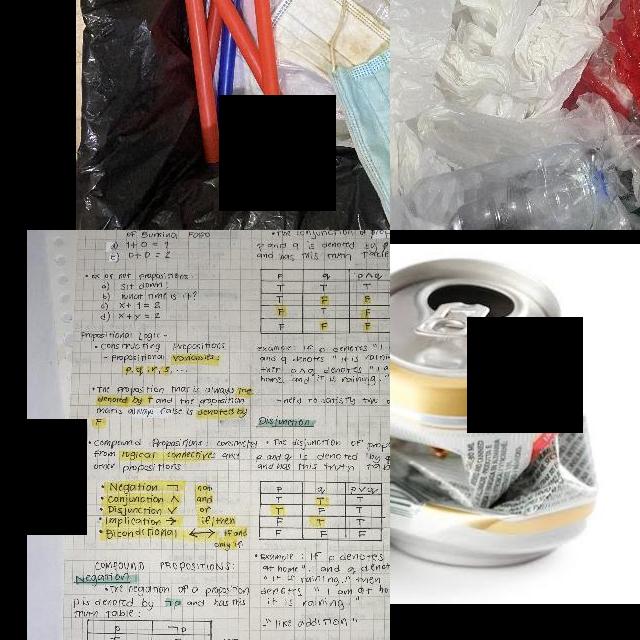 of Buminal Food
d) 1 + 0 = 1
e) 0 + 0 = 2
• ex of not propositions:
a) sit down!
b) what time is it?
c) x + 1 = 2
d) x + y = z
Propositional Logic -
• constructing propositions
- propositional variables:
p, q, r, s, ...
• The proposition that is always true
denoted by T and the proposition
that is always false is denoted by
F
• Compound Propositions: constructy
from logical connectives and
other propositions
• Negation ¬ not
• conjunction ∧ and
• Disjunction ∨ or
• Implication → if/then
• Biconditional ↔ if and
only if
COMPOUND PROPOSITIONS:
Negation
• The negation of a proposition
p is denoted by ¬p and has this
truth table:
P ¬p
• The conjunction of prop
p and q is denoted by p
and has this truth table
P q p∧q
T T T
T F F
F T F
F F F
example: If p denotes "I
and q denotes "it is raini
then p∧q denotes "I a
home and it is raining."
- need to satisfy the
Disjunction
• The disjunction of prop
p and q is denoted by
and has this truth tab
P q p∨q
T T T
T F T
F T T
F F F
• Example: If p denotes
at home". and q denot
"it is raining." then
denotes "I am at ho
it is raining"
- "like addition"